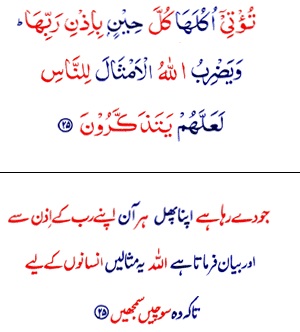 تُؤۡتِيۡۤ اُكُلَهَا كُلَّ حِيۡنٍۢ بِاِذۡنِ رَبِّهَا‌ؕ
وَيَضۡرِبُ اللّٰهُ الۡاَمۡثَالَ لِلنَّاسِ
لَعَلَّهُمۡ يَتَذَكَّرُوۡنَ ﴿۲۵﴾
جو دے رہا ہے اپنا پھل ہر آن اپنے رب کے اِذن سے
اور بیان فرماتا ہے اللہ یہ مثالیں انسانوں کے لیے
تاکہ وہ سوچیں سمجھیں ﴿۲۵﴾